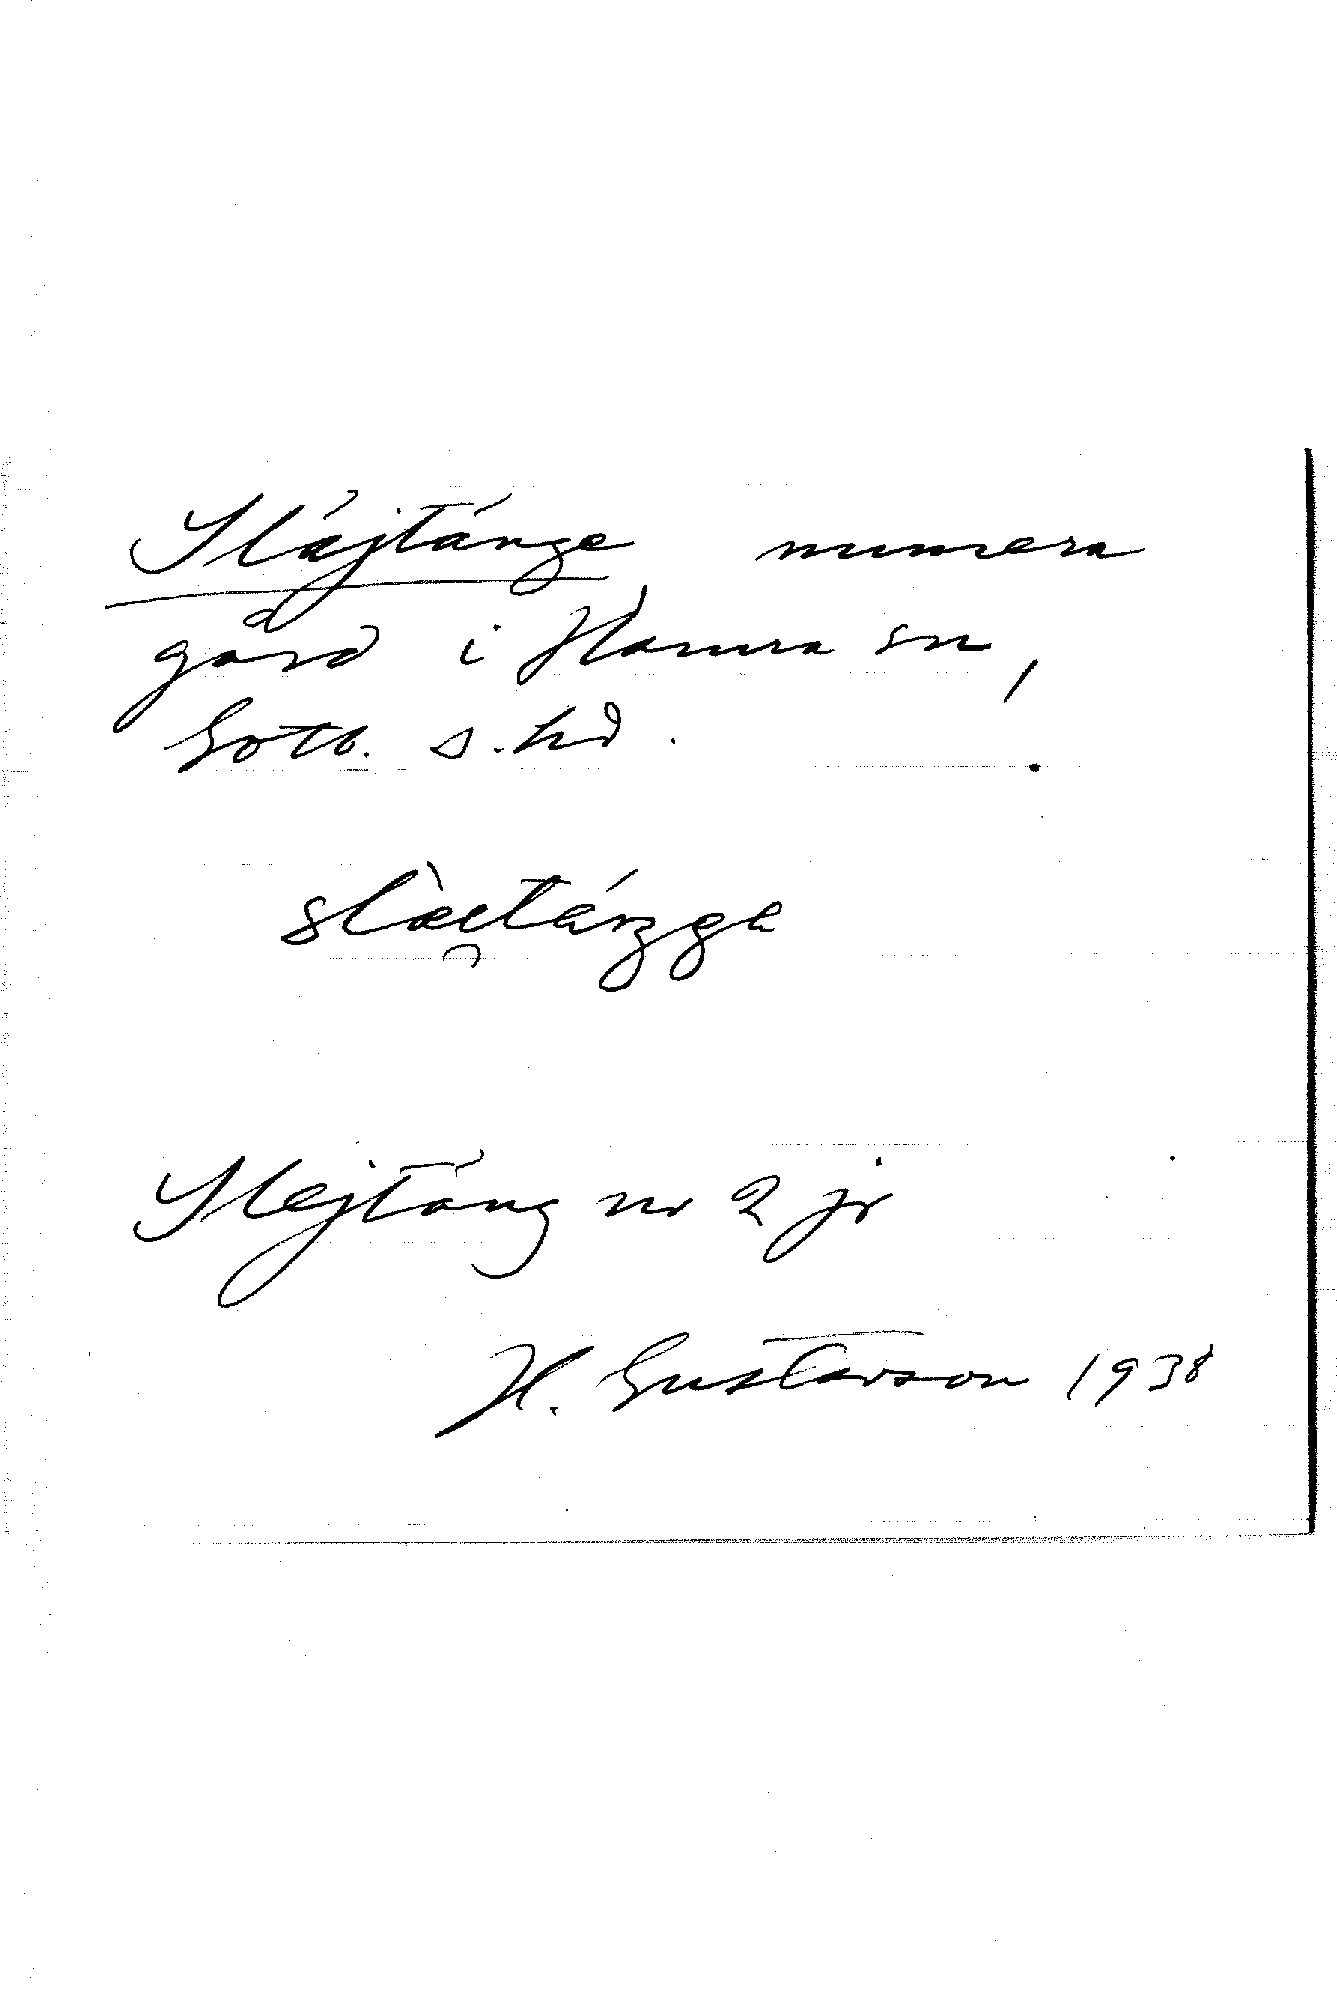 Släjtänge numera
gård i Hamra sn,
Gotl. s. hd.
slàetáŋgə
Slejtäng nr 2 jr
H. Gustavson 1938